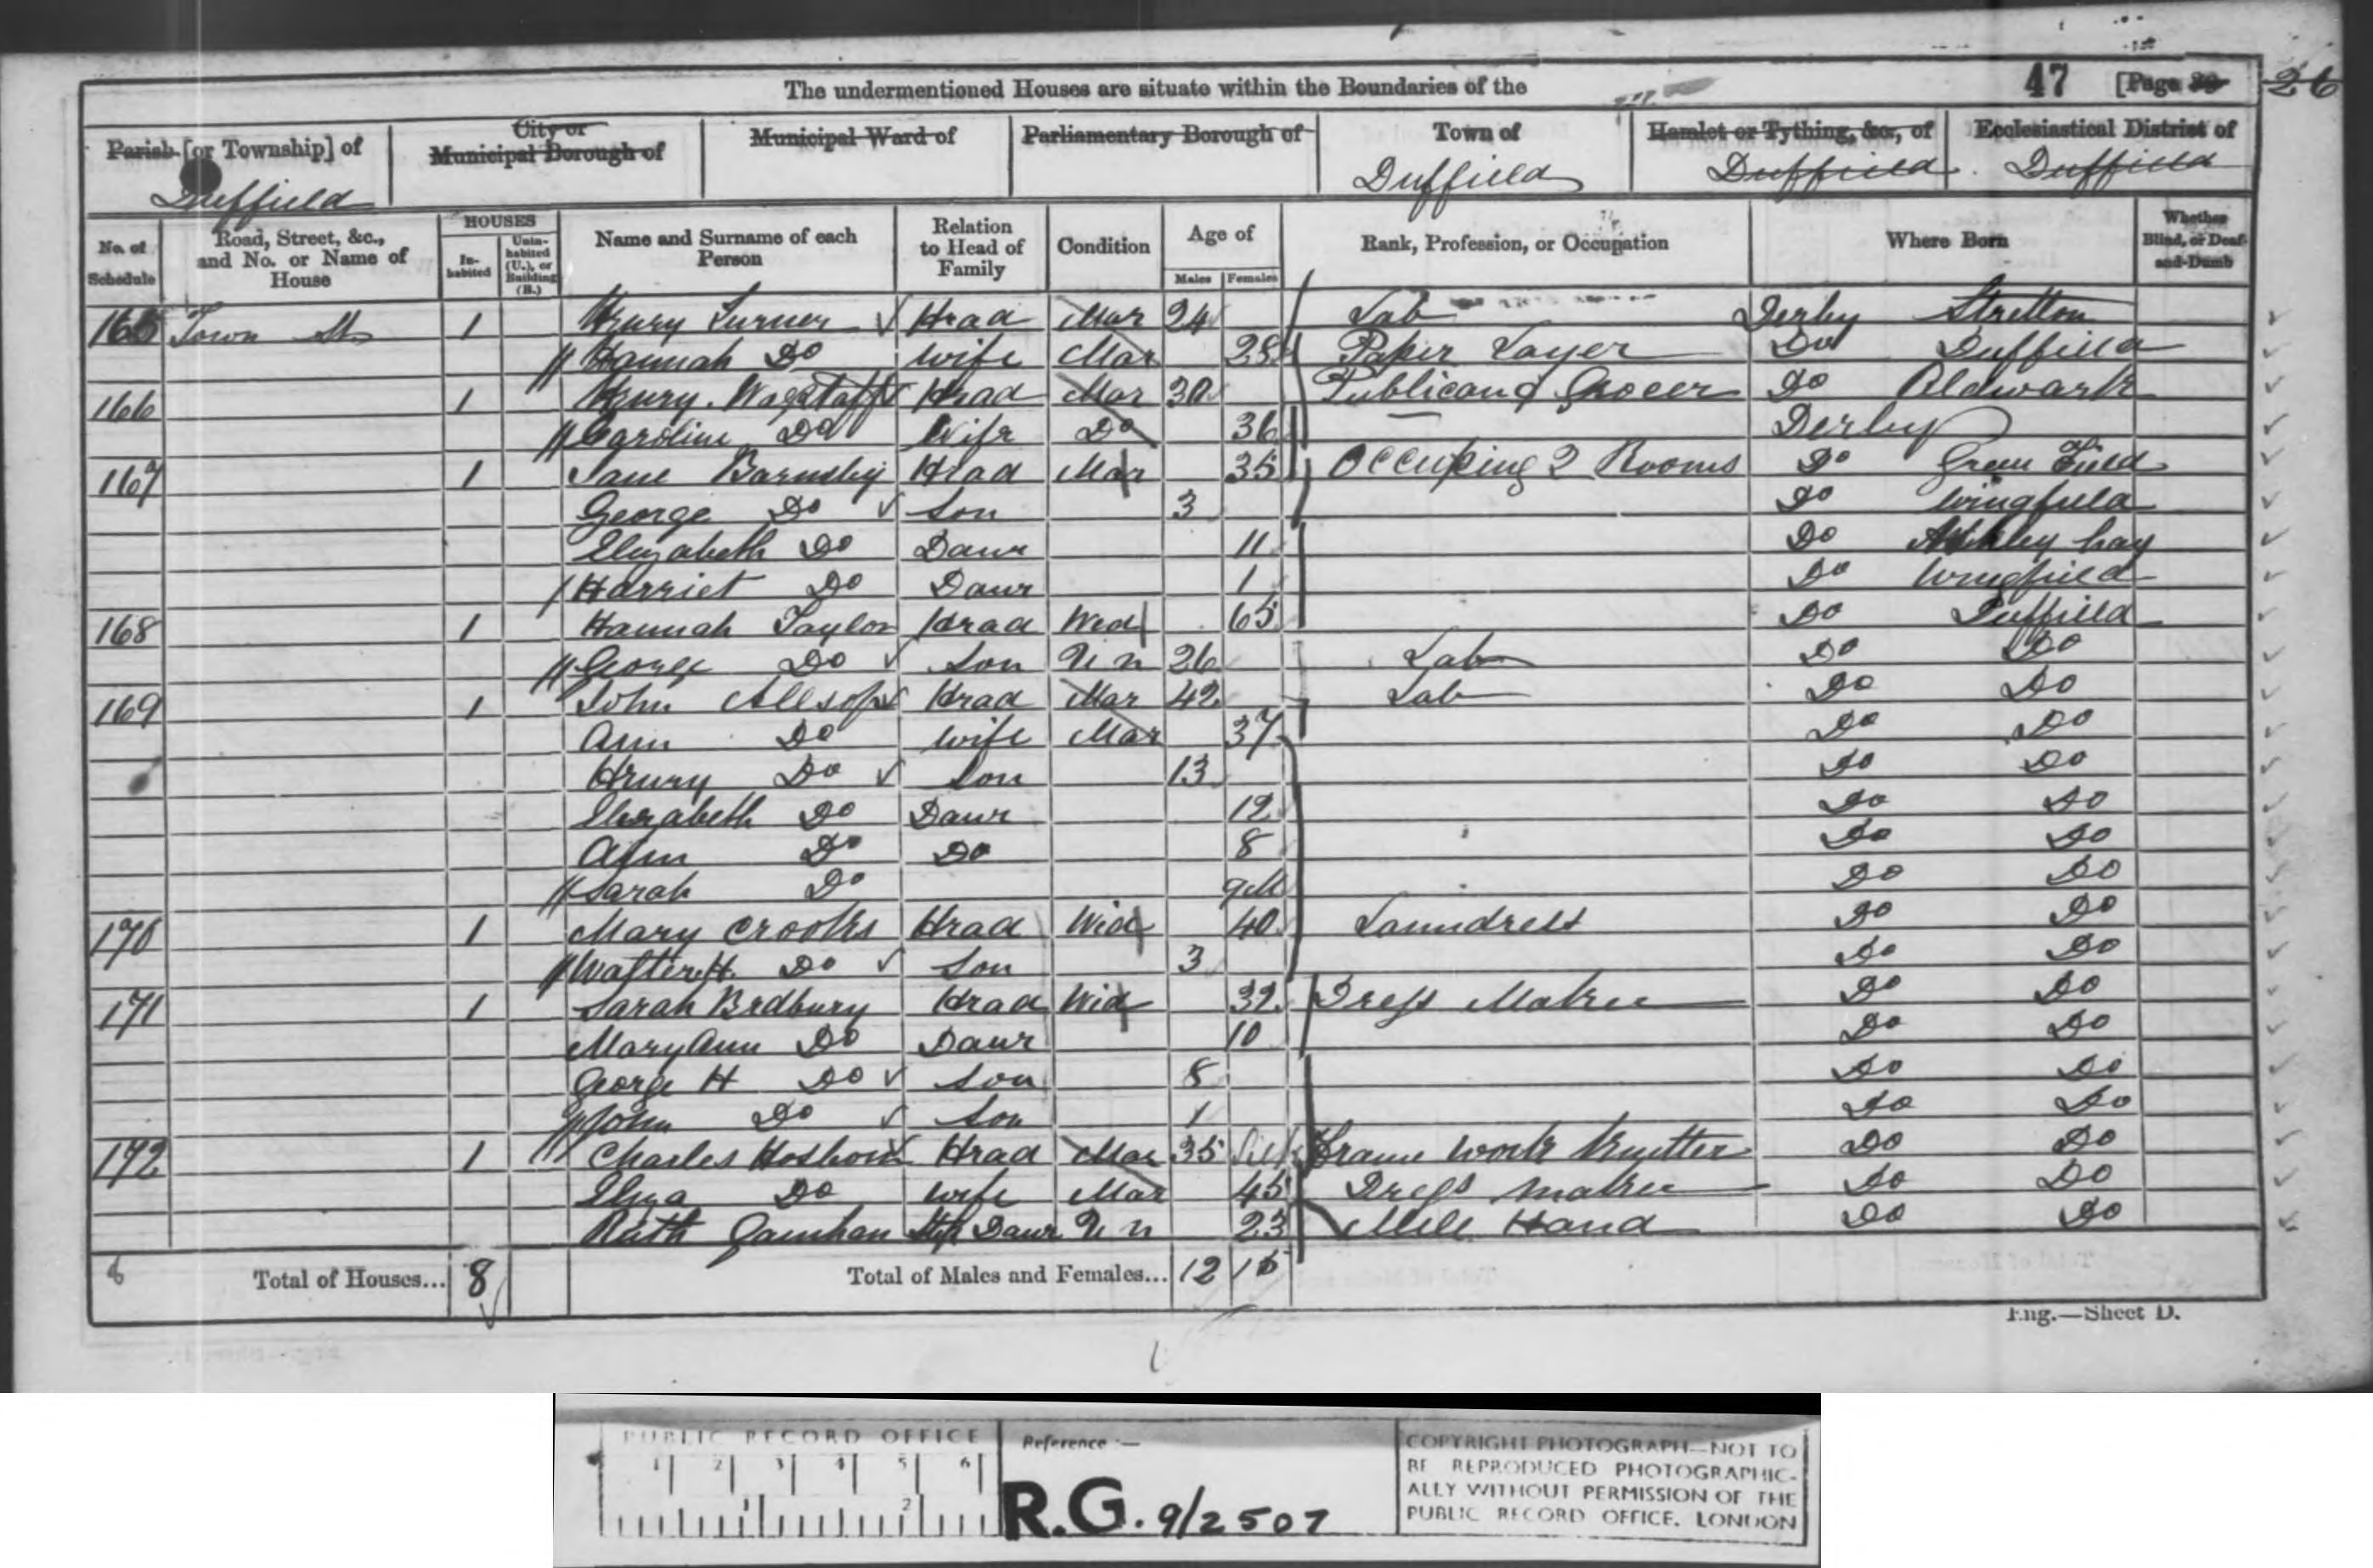 The undermentioned Houses are situate within the Boundaries of the 47 [Page 26
Parish [or Township] of City or Municipal Borough of Municipal Ward of Parliamentary Borough of Town of Hamlet or Tything, &c., of Ecclesiastical District of
Duffield Duffield Duffield Duffield
No. of Schedule Road, Street, &c., and No. or Name of House HOUSES Inhabited Uninhabited (U.), or Building (B.) Name and Surname of each Person Relation to Head of Family Condition Age of Males Females Rank, Profession, or Occupation Where Born Whether Blind, or Deaf-and-Dumb
165 Town St 1 Henry Turner Head Mar 24 Lab Derby Stretton
Hannah Do Wife Mar 28 Paper Layer Do Duffield
166 1 Henry Wagstaff Head Mar 30 Publican & Grocer Do Aldwark
Caroline Do Wife Do 36 Derby
167 1 Jane Barnsley Head Mar 35 Occuping 2 Rooms Do Green Field
George Do Son 3 Do Wingfield
Elizabeth Do Daur 11 Do Ashley hay
Harriet Do Daur 1 Do Wingfield
168 1 Hannah Taylor Head Wid 65 Do Duffield
George Do Son Un 26 Lab Do Do
169 1 John Allsop Head Mar 42 Lab Do Do
Ann Do Wife Mar 37 Do Do
Henry Do Son 13 Do Do
Elizabeth Do Daur 12 Do Do
Ann Do Do 8 Do Do
Sarah Do 9M Do Do
170 1 Mary Crooks Head Wid 40 Laundress Do Do
Walter H. Do Son 3 Do Do
171 1 Sarah Bradbury Head Wid 32 Dress Maker Do Do
Mary Ann Do Daur 10 Do Do
George H Do Son 8 Do Do
John Do Son 1 Do Do
172 1 Charles Head Mar 35 Silk Frame Work Knitter Do Do
Eliza Do Wife Mar 45 Dress maker Do Do
Ruth Step Daur Un 23 Mill Hand Do Do
Total of Houses... 8 Total of Males and Females... 12 15
Eng.—Sheet D.
PUBLIC RECORD OFFICE Reference:—
1 2 3 4 5 6
1 2
R.G. 9/2507
COPYRIGHT PHOTOGRAPH—NOT TO
BE REPRODUCED PHOTOGRAPHIC-
ALLY WITHOUT PERMISSION OF THE
PUBLIC RECORD OFFICE, LONDON